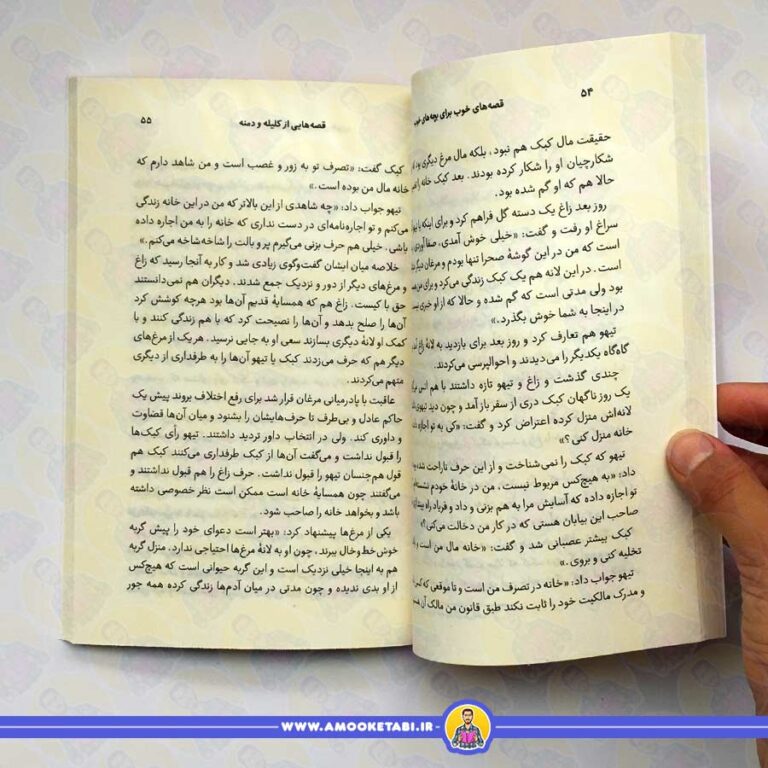 ۵۴
قصه‌های خوب برای بچه‌های خوب
حقیقت مال کبک هم نبود، بلکه مال مرغ دیگری بود
شکارچیان او را شکار کرده بودند. بعد کبک خانه را
حالا هم که او گم شده بود.
روز بعد زاغ یک دسته گل فراهم کرد و برای اینکه با
سراغ او رفت و گفت: «خیلی خوش آمدی، صفا آوردی،
است که من در این گوشهٔ صحرا تنها بودم و مرغان دیگر
است. در این لانه هم یک کبک زندگی می‌کرد و برای من
بود ولی مدتی است که گم شده و حالا که از او خبری
در اینجا به شما خوش بگذرد.»
تیهو هم تعارف کرد و روز بعد برای بازدید به لانهٔ زاغ
گاه‌گاه یکدیگر را می‌دیدند و احوالپرسی می‌کردند.
چندی گذشت و زاغ و تیهو تازه داشتند با هم انس
یک روز ناگهان کبک دری از سفر باز آمد و چون دید تیهو
لانه‌اش منزل کرده اعتراض کرد و گفت: «کی به تو اجازه
خانه منزل کنی؟»
تیهو که کبک را نمی‌شناخت و از این حرف ناراحت شده
داد: «به هیچ‌کس مربوط نیست، من در خانهٔ خودم
تو اجازه داده که آسایش مرا به هم بزنی و داد و فریاد راه
صاحب این بیابان هستی که در کار من دخالت می‌کنی؟»
کبک بیشتر عصبانی شد و گفت: «خانه مال من است و
تخلیه کنی و بروی.»
تیهو جواب داد: «خانه در تصرف من است و تا موقعی که
و مدرک مالکیت خود را ثابت نکند طبق قانون من مالک آن
قصه‌هایی از کلیله و دمنه
۵۵
کبک گفت: «تصرف تو به زور و غصب است و من شاهد دارم که
خانه مال من بوده است.»
تیهو جواب داد: «چه شاهدی از این بالاتر که من در این خانه زندگی
می‌کنم و تو اجاره‌نامه‌ای در دست نداری که خانه را به من اجاره داده
باشی. خیلی هم حرف بزنی می‌گیرم پر و بالت را شاخه‌شاخه می‌کنم.»
خلاصه میان ایشان گفت‌وگوی زیادی شد و کار به آنجا رسید که زاغ
و مرغ‌های دیگر از دور و نزدیک جمع شدند. دیگران هم نمی‌دانستند
حق با کیست. زاغ هم که همسایهٔ قدیم آن‌ها بود هرچه کوشش کرد
آن‌ها را صلح بدهد و آن‌ها را نصیحت کرد که با هم زندگی کنند و با
کمک او لانهٔ دیگری بسازند سعی او به جایی نرسید. هر یک از مرغ‌های
دیگر هم که حرف می‌زدند کبک یا تیهو آن‌ها را به طرفداری از دیگری
متهم می‌کردند.
عاقبت با پادرمیانی مرغان قرار شد برای رفع اختلاف بروند پیش یک
حاکم عادل و بی‌طرف تا حرف‌هایشان را بشنود و میان آن‌ها قضاوت
و داوری کند. ولی در انتخاب داور تردید داشتند. تیهو رأی کبک‌ها
را قبول نداشت و می‌گفت آن‌ها از کبک طرفداری می‌کنند کبک هم
قول هم‌جنسان تیهو را قبول نداشت. حرف زاغ را هم قبول نداشتند و
می‌گفتند چون همسایهٔ خانه است ممکن است نظر خصوصی داشته
باشد و بخواهد خانه را صاحب شود.
یکی از مرغ‌ها پیشنهاد کرد: «بهتر است دعوای خود را پیش گربه
خوش خط‌وخال ببرند، چون او به لانهٔ مرغ‌ها احتیاجی ندارد. منزل گربه
هم به اینجا خیلی نزدیک است و این گربه حیوانی است که هیچ‌کس
از او بدی ندیده و چون مدتی در میان آدم‌ها زندگی کرده همه جور
WWW.AMOOKETABI.IR